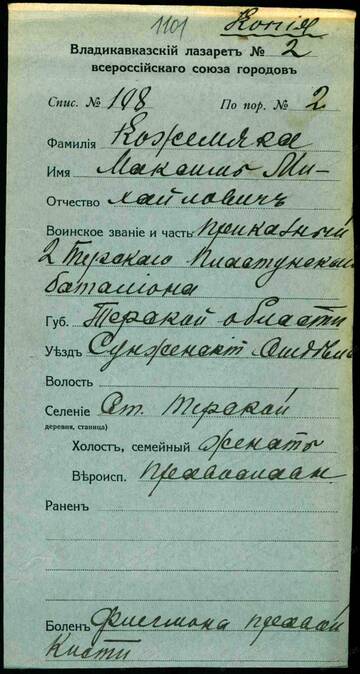 1101
Копія
Владикавказскій лазаретъ № 2
всероссійскаго союза городовъ
Спис. № 108 По пор. № 2
Фамилія Кожемяка
Имя Максимъ Ми-
Отчество хайловичъ
Воинское званіе и часть приказный
2 Терскаго Пластунскаго
баталіона
Губ. Терской области
Уѣздъ Сунженскій Отдѣлъ
Волость
Селеніе Ст. Терской
деревня, станица)
Холостъ, семейный женатъ
Вѣроисп. православн
Раненъ
Боленъ Флегмона правой
Кисти